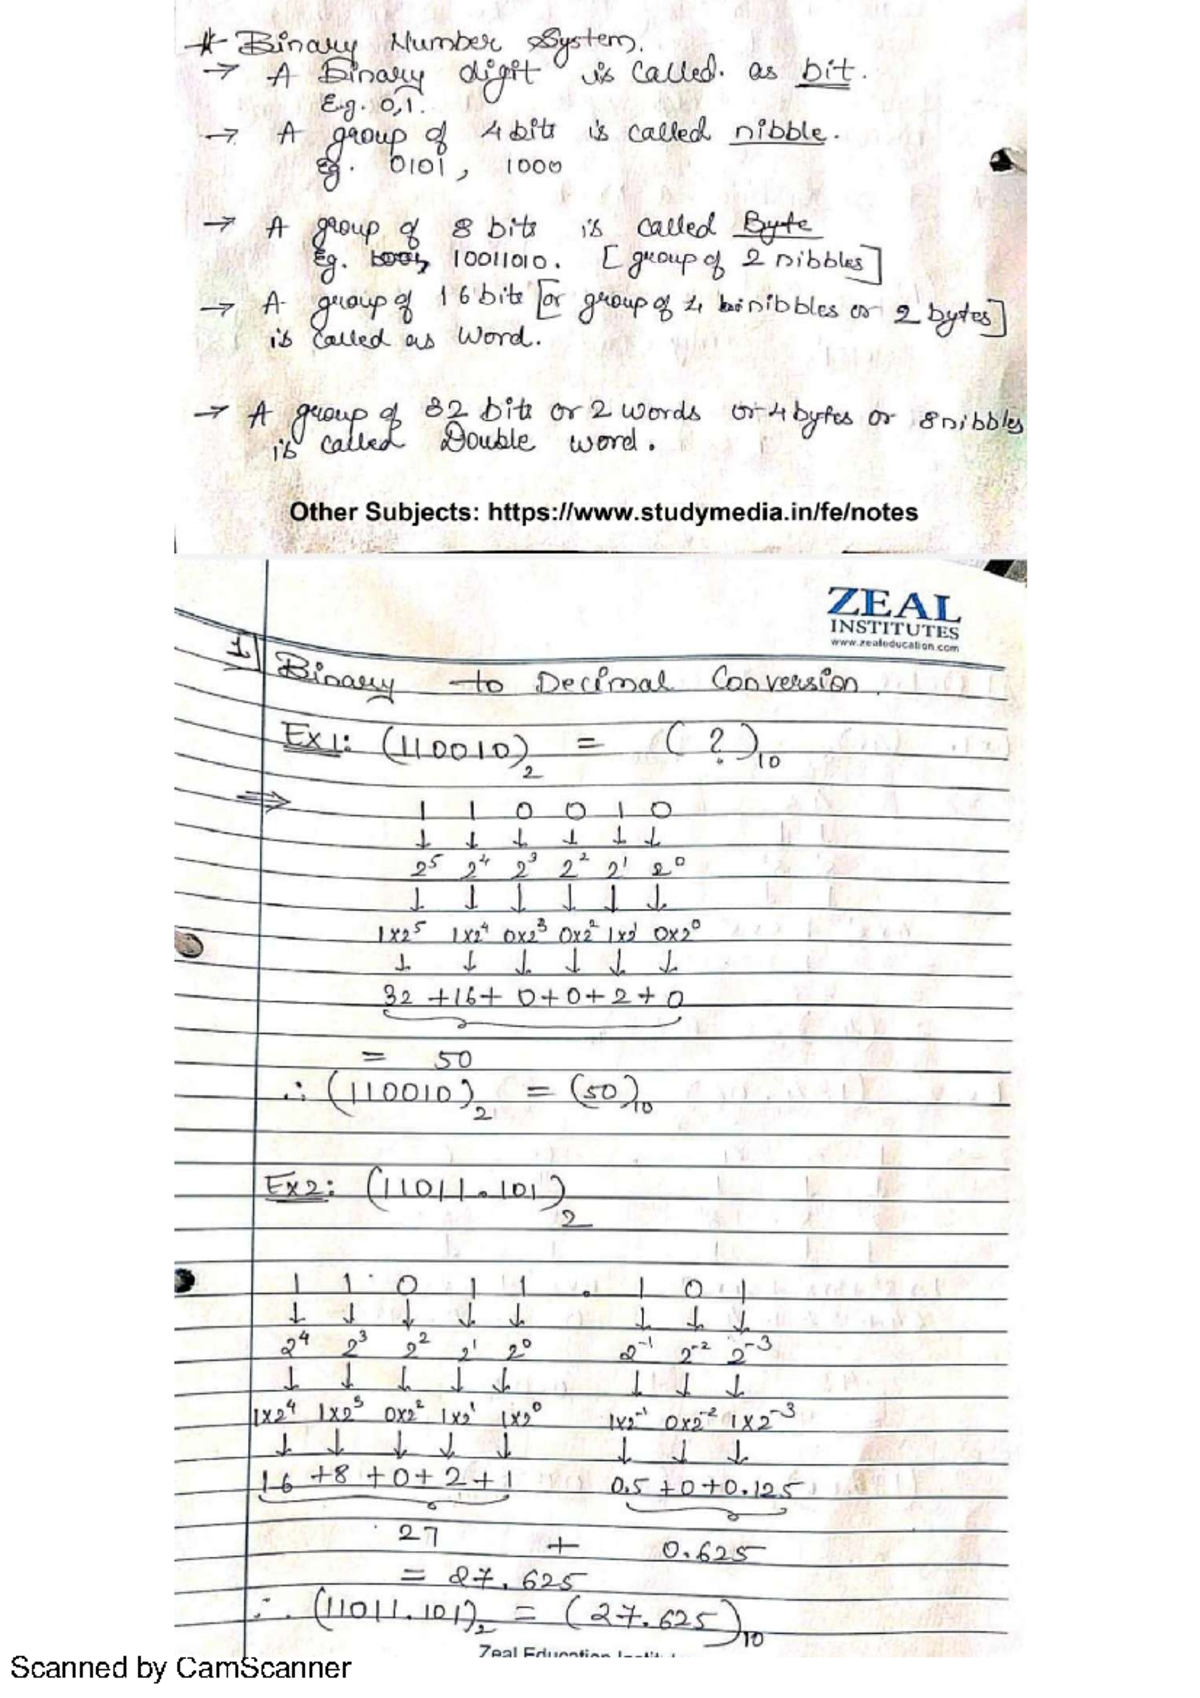 * Binary Number System.
→ A Binary digit is called. as bit.
Eg. 0,1.
→ A group of 4 bits is called nibble.
Eg. 0101, 1000
→ A group of 8 bits is called Byte
Eg. 10011010. [group of 2 nibbles]
→ A group of 16 bits [or group of 4 nibbles or 2 bytes]
is called as Word.
→ A group of 32 bits or 2 words or 4 bytes or 8 nibbles
is called Double word.
Other Subjects: https://www.studymedia.in/fe/notes
ZEAL
INSTITUTES
www.zealeducation.com
1] Binary to Decimal Conversion.
Ex1: (110010)₂ = (?)₁₀
⇒ 1 1 0 0 1 0
↓ ↓ ↓ ↓ ↓ ↓
2⁵ 2⁴ 2³ 2² 2¹ 2⁰
↓ ↓ ↓ ↓ ↓ ↓
1x2⁵ 1x2⁴ 0x2³ 0x2² 1x2¹ 0x2⁰
↓ ↓ ↓ ↓ ↓ ↓
32 +16+ 0+0+2+0
= 50
∴ (110010)₂ = (50)₁₀
Ex2: (11011.101)₂
1 1 0 1 1 . 1 0 1
↓ ↓ ↓ ↓ ↓ ↓ ↓ ↓
2⁴ 2³ 2² 2¹ 2⁰ 2⁻¹ 2⁻² 2⁻³
↓ ↓ ↓ ↓ ↓ ↓ ↓ ↓
1x2⁴ 1x2³ 0x2² 1x2¹ 1x2⁰ 1x2⁻¹ 0x2⁻² 1x2⁻³
↓ ↓ ↓ ↓ ↓ ↓ ↓ ↓
16 +8 +0+2+1 0.5 +0+0.125
27 + 0.625
= 27.625
∴ (11011.101)₂ = (27.625)₁₀
Zeal Education
Scanned by CamScanner